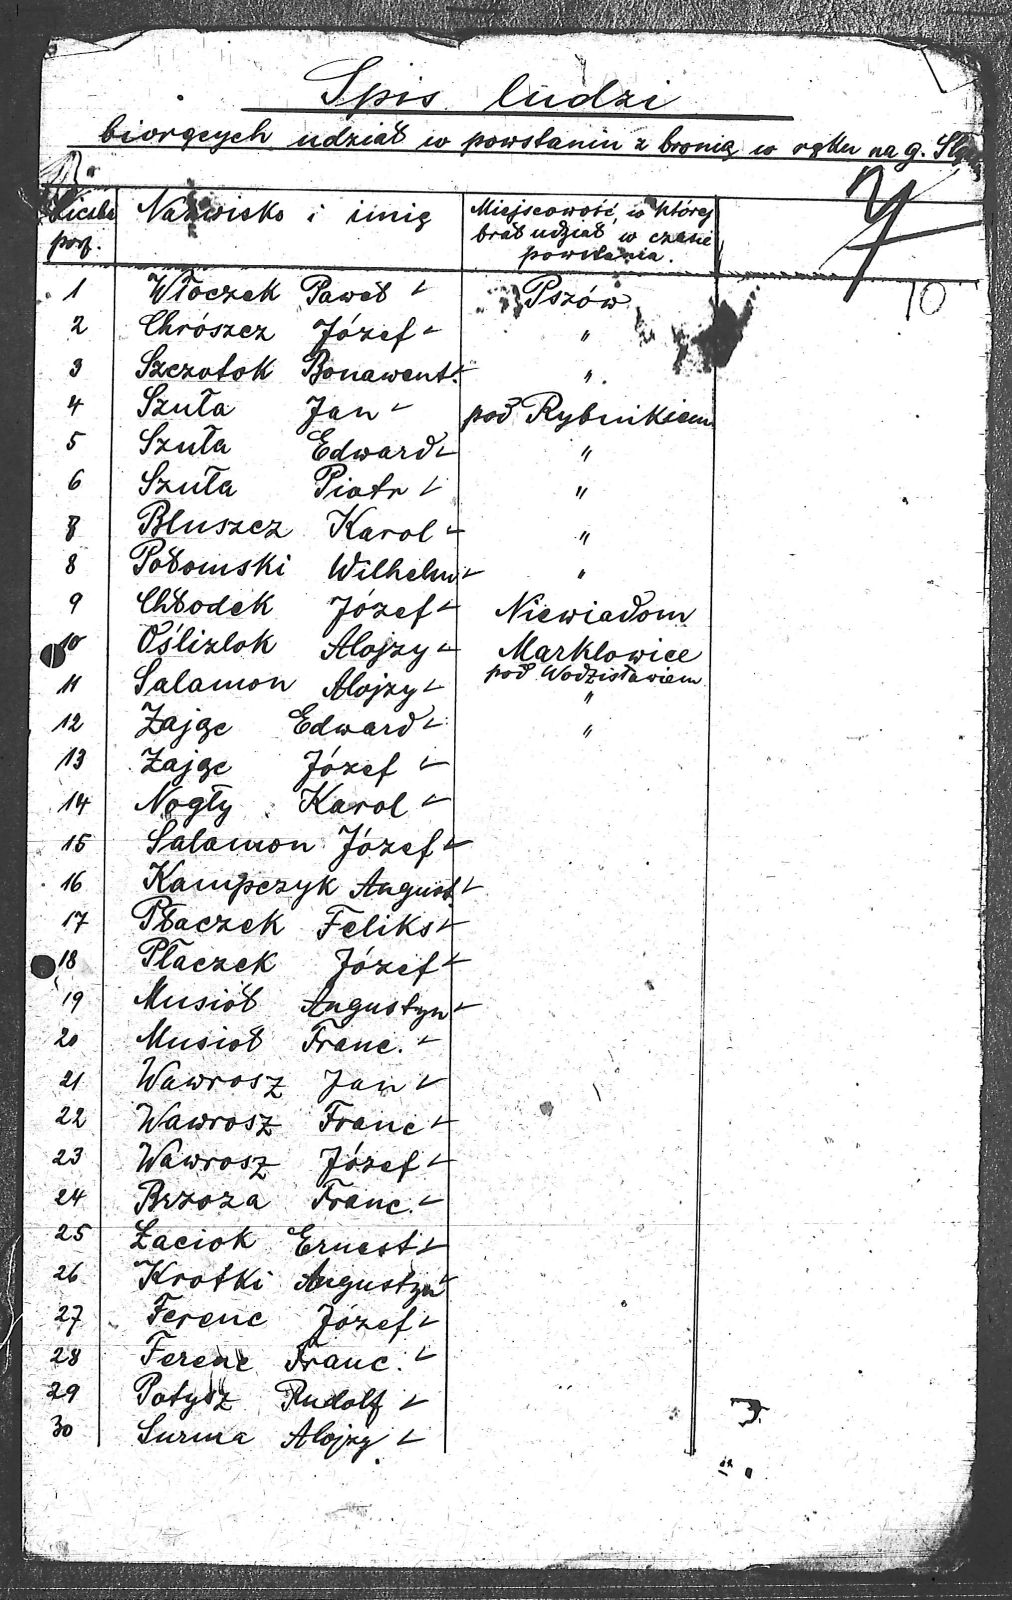 Spis ludzi
biorących udział w powstaniu z bronią w ręku na g. Śląs
Liczba porz. Nazwisko i imię Miejscowość, w której brał udział w czasie powstania.
7
10
1 Włoczek Paweł Pszów
2 Chrószcz Józef "
3 Szczotok Bonawent. "
4 Szuła Jan pod Rybnikiem
5 Szuła Edward "
6 Szuła Piotr "
7 Bluszcz Karol "
8 Połomski Wilhelm "
9 Chłodek Józef Niewiadom
10 Oślizlok Alojzy Marklowice
pod Wodzisławiem
11 Salamon Alojzy "
12 Zając Edward "
13 Zając Józef
14 Nogły Karol
15 Salamon Józef
16 Kampczyk August.
17 Płaczek Feliks
18 Płaczek Józef
19 Musioł Augustyn
20 Musioł Franc.
21 Wawrosz Jan
22 Wawrosz Franc
23 Wawrosz Józef
24 Brzoza Franc.
25 Łaciok Ernest
26 Krotki Augustyn
27 Ferenc Józef
28 Ferenc Franc.
29 Potysz Rudolf
30 Surma Alojzy